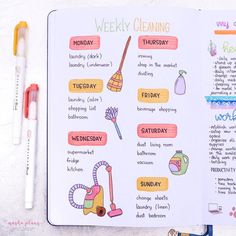 WEEKLY CLEANING
MONDAY
laundry (dark)
laundry (underwear)
TUESDAY
laundry (color)
shopping list
bathroom
WEDNESDAY
supermarket
fridge
kitchen
THURSDAY
ironing
shop in the market
dusting
FRIDAY
beverage shopping
SATURDAY
dust living room
bathroom
vacuum
SUNDAY
change sheets
laundry (linen)
dust bedroom
my
work
PRODUCTIVITY